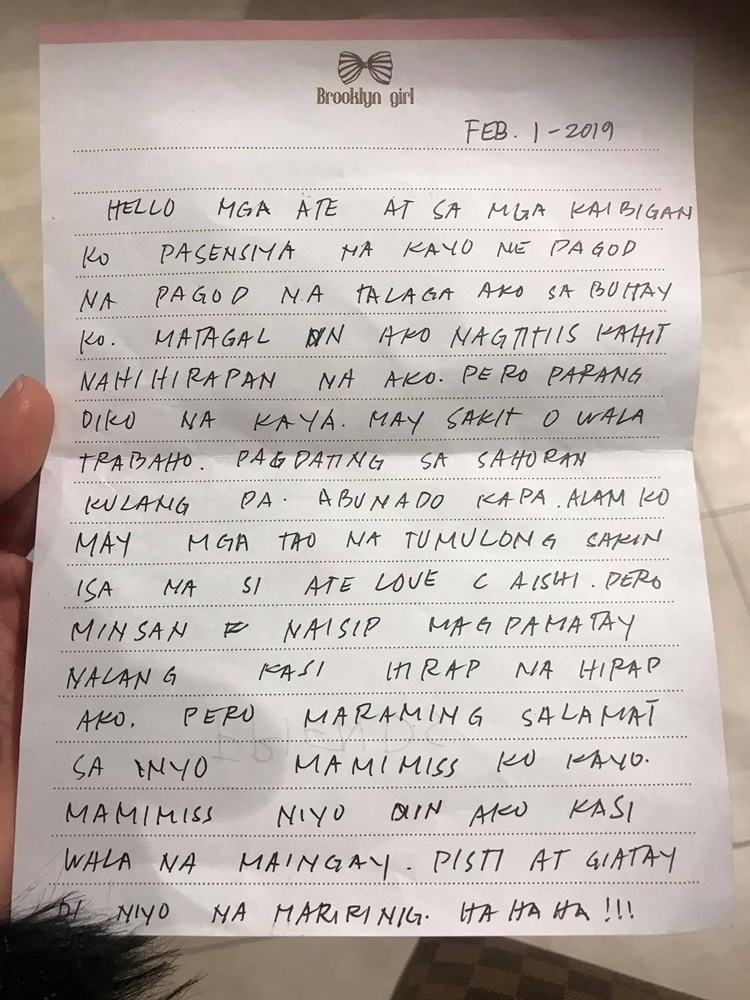 Brooklyn girl
FEB. 1-2019
HELLO MGA ATE AT SA MGA KAIBIGAN
KO PASENSIYA NA KAYO NE PAGOD
NA PAGOD NA TALAGA AKO SA BUHAY
KO. MATAGAL DIN AKO NAGTITIIS KAHIT
NAHIHIRAPAN NA AKO. PERO PARANG
DIKO NA KAYA. MAY SAKIT O WALA
TRABAHO. PAGDATING SA SAHORAN
KULANG PA. ABUNADO KAPA. ALAM KO
MAY MGA TAO NA TUMULONG SAKIN
ISA NA SI ATE LOVE C AISHI. PERO
MINSAN NAISIP MAGPAMATAY
NALANG KASI HIRAP NA HIRAP
AKO. PERO MARAMING SALAMAT
SA INYO MAMIMISS KO KAYO.
MAMIMISS NIYO DIN AKO KASI
WALA NA MAINGAY. PISTI AT GIATAY
DI NIYO NA MARIRINIG. HA HA HA !!!